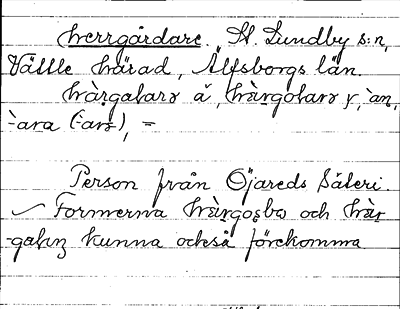 herrgårdare. St. Lundby s:n,
Vättle härad, Älfsborgs län.
hàrgalarə ä, hàrgolarə y, -àn,
-àra (-arə), =
Person från Öjareds säteri.
Formerna och hàr-
kunna också förekomma.